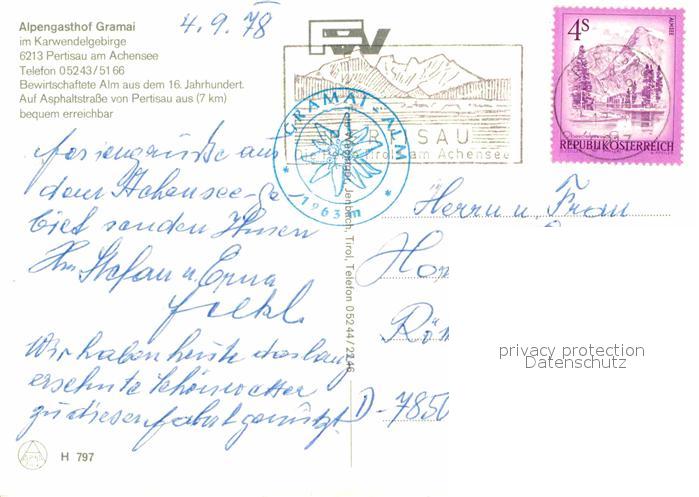 Alpengasthof Gramai
im Karwendelgebirge
6213 Pertisau am Achensee
Telefon 05243/5166
Bewirtschaftete Alm aus dem 16. Jahrhundert.
Auf Asphaltstraße von Pertisau aus (7 km)
bequem erreichbar
4.9.78
Feriengrüße aus
dem Achensee-Ge
biet senden Ihnen
Stefan u. Erna
Wir haben heute das lang
ersehnte Schönwetter
zu dieser Fahrt genützt.
H 797
GRAMAI-ALM
1263 m
am Achensee
Jenbach, Tirol, Telefon 05244/2246
4S
ALMSEE
REPUBLIK ÖSTERREICH
Herrn u. Frau
D-7850
privacy protection
Datenschutz